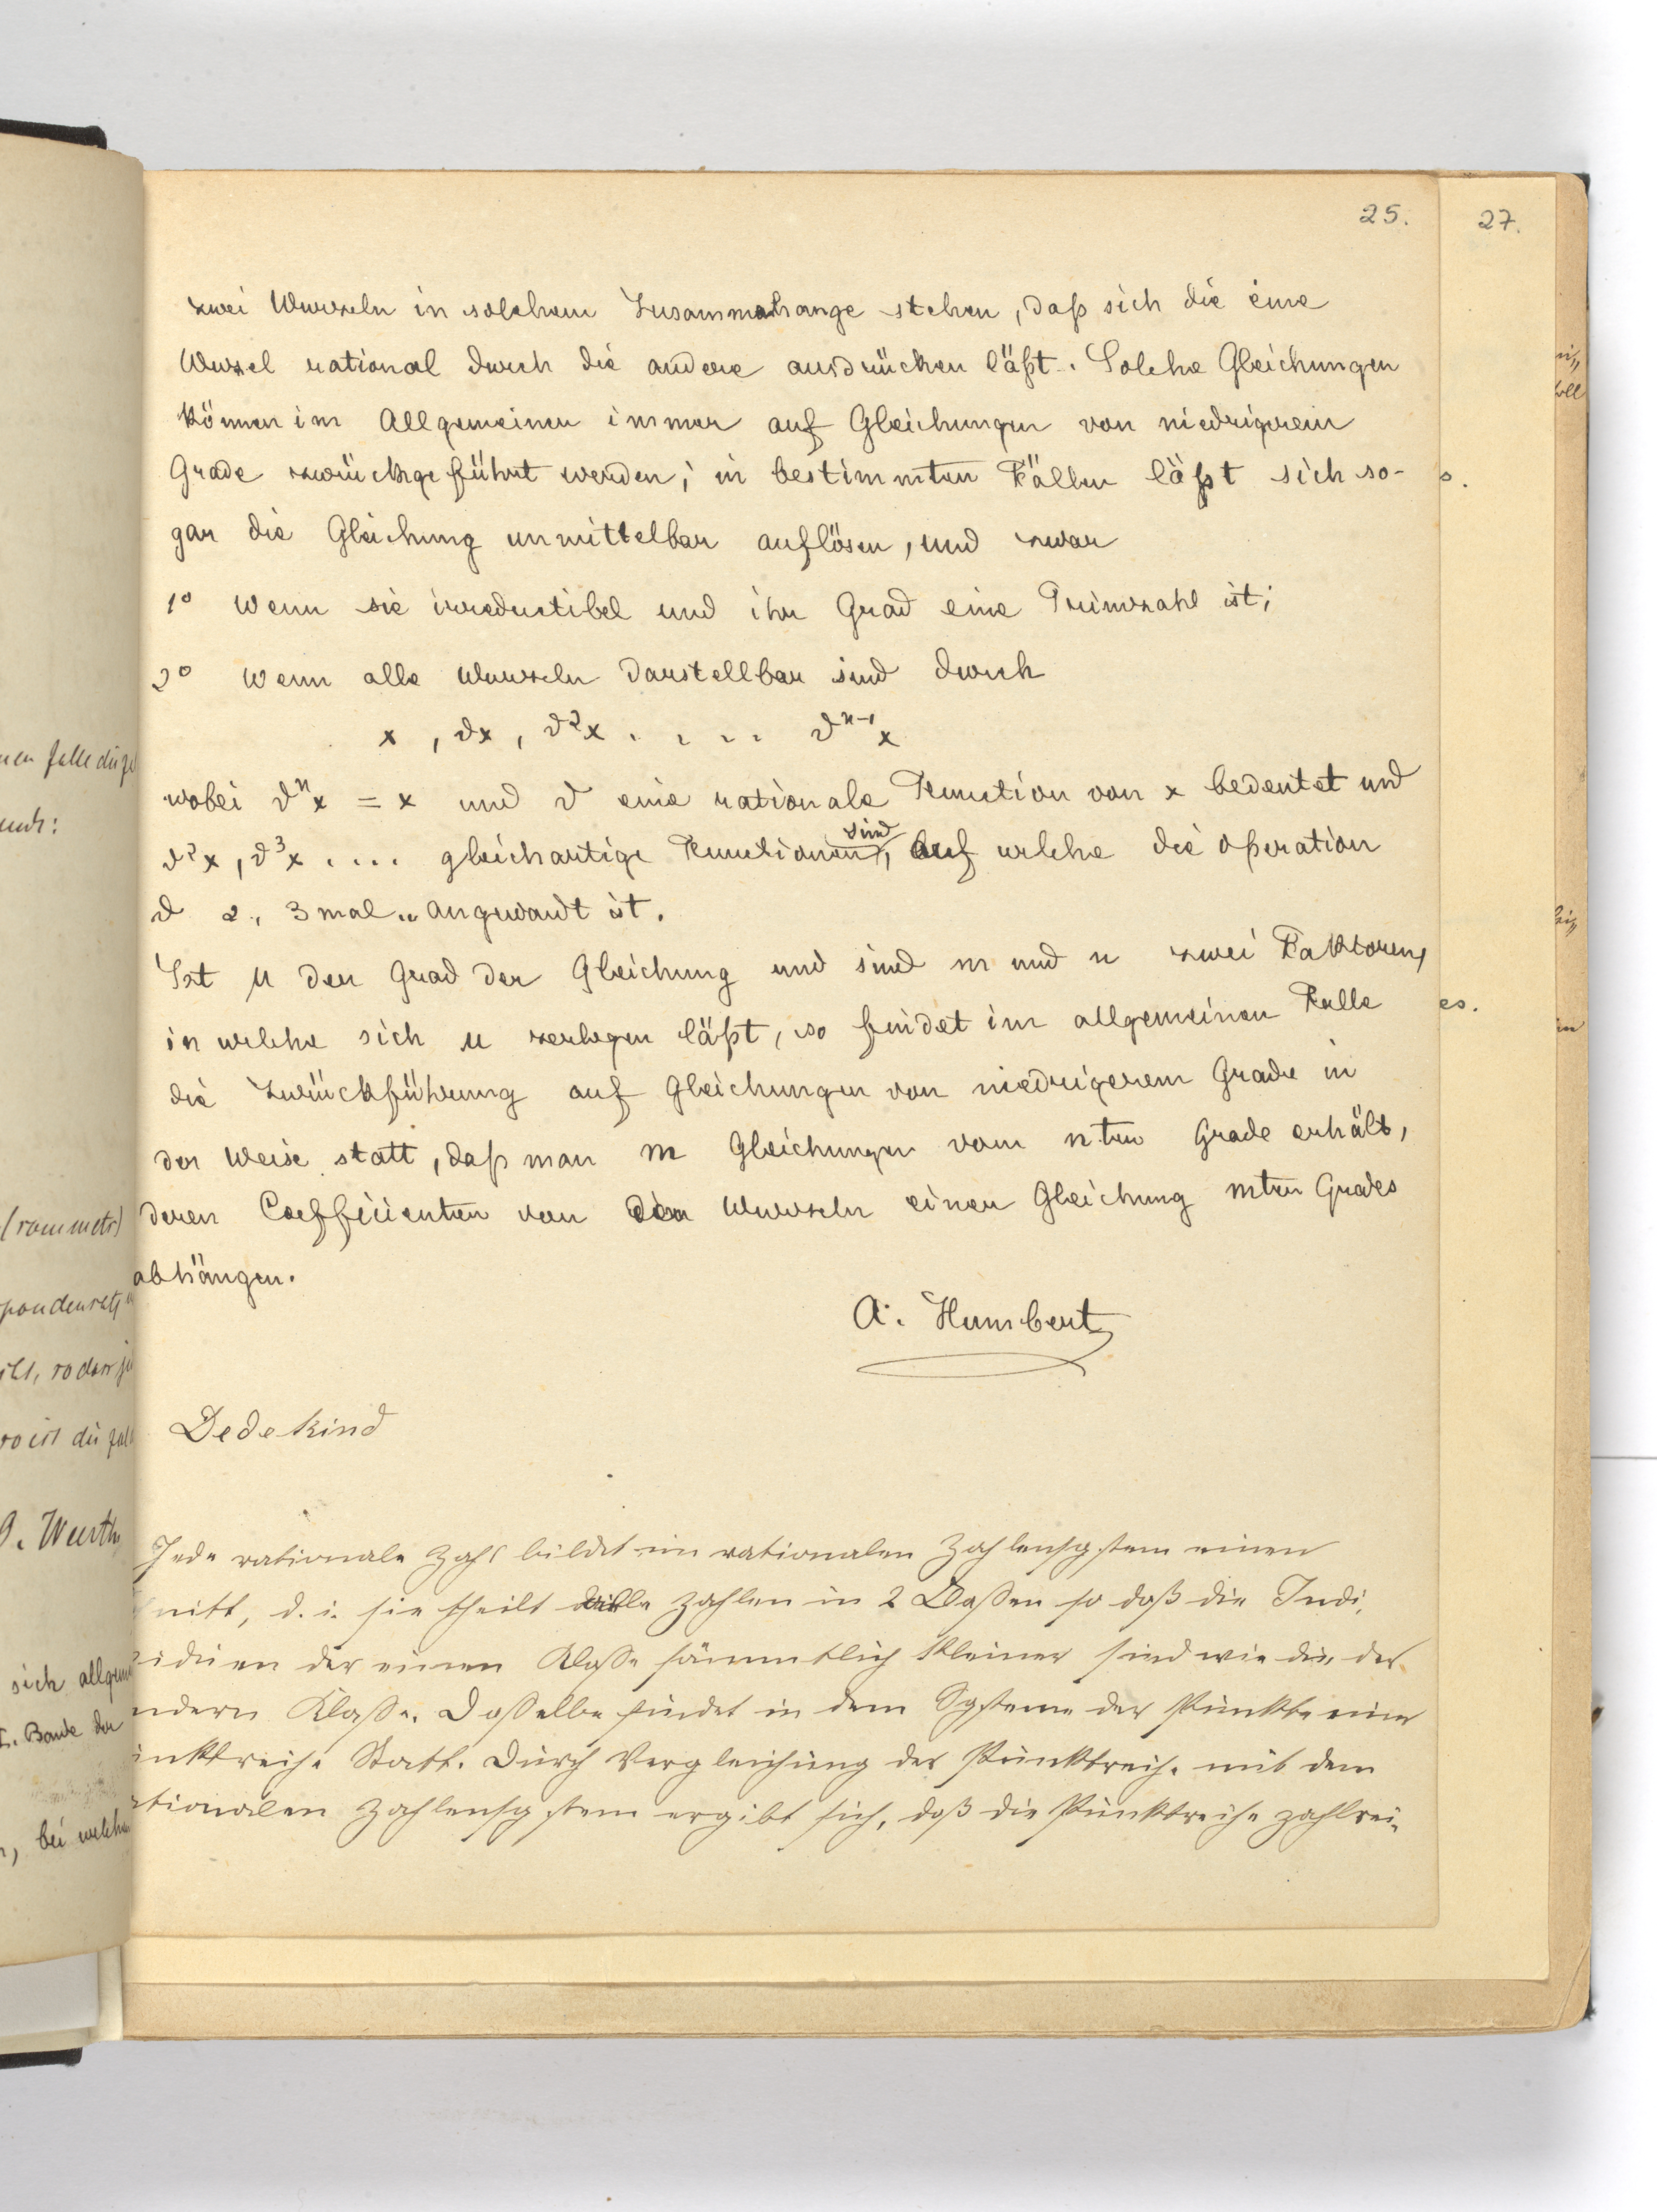 25.
27.
zwei Wurzeln in solchem Zusammenhange stehen, daß sich die eine
Wurzel rational durch die andere ausdrücken läßt. Solche Gleichungen
können im Allgemeinen immer auf Gleichungen von niedrigerem
Grade zurückgeführt werden; in bestimmten Fällen läßt sich so-
gar die Gleichung unmittelbar auflösen, und zwar
1° wenn sie irreductibel und ihr Grad eine Primzahl ist;
2° wenn alle Wurzeln darstellbar sind durch
x, ϑx, ϑ²x . . . . ϑⁿ⁻¹x
wobei ϑⁿx = x und ϑ eine rationale Function von x bedeutet und
ϑ²x, ϑ³x .... gleichartige Functionen sind, auf welche die operation
ϑ 2, 3 mal .. angewandt ist.
Ist µ der Grad der Gleichung und sind m und n zwei Faktoren,
in welche sich µ zerlegen läßt, so findet im allgemeinen Falle
die Zurückführung auf Gleichungen von niedrigerem Grade in
der Weise statt, daß man m Gleichungen vom nten Grade erhält,
deren Coefficienten von den Wurzeln einer Gleichung mten Grades
abhängen.
A. Humbert
Dedekind
Jede rationale Zahl bildet im rationalen Zahlensystem einen
nitt, d. i. sie theilt alle Zahlen in 2 Classen so daß die Indi-
viduen der einen Klasse sämmtlich kleiner sind wie die der
ndern Klasse. Dasselbe findet in dem Systeme der Punkte einer
unktreihe Statt. Durch Vergleichung der Punktreihe mit dem
ationalen Zahlensystem ergibt sich, daß die Punktreihe zahlrei-
nen falle die
(rommets)
so ist die
G. Wurth
sich allgem
I. Bande der
, bei welchen